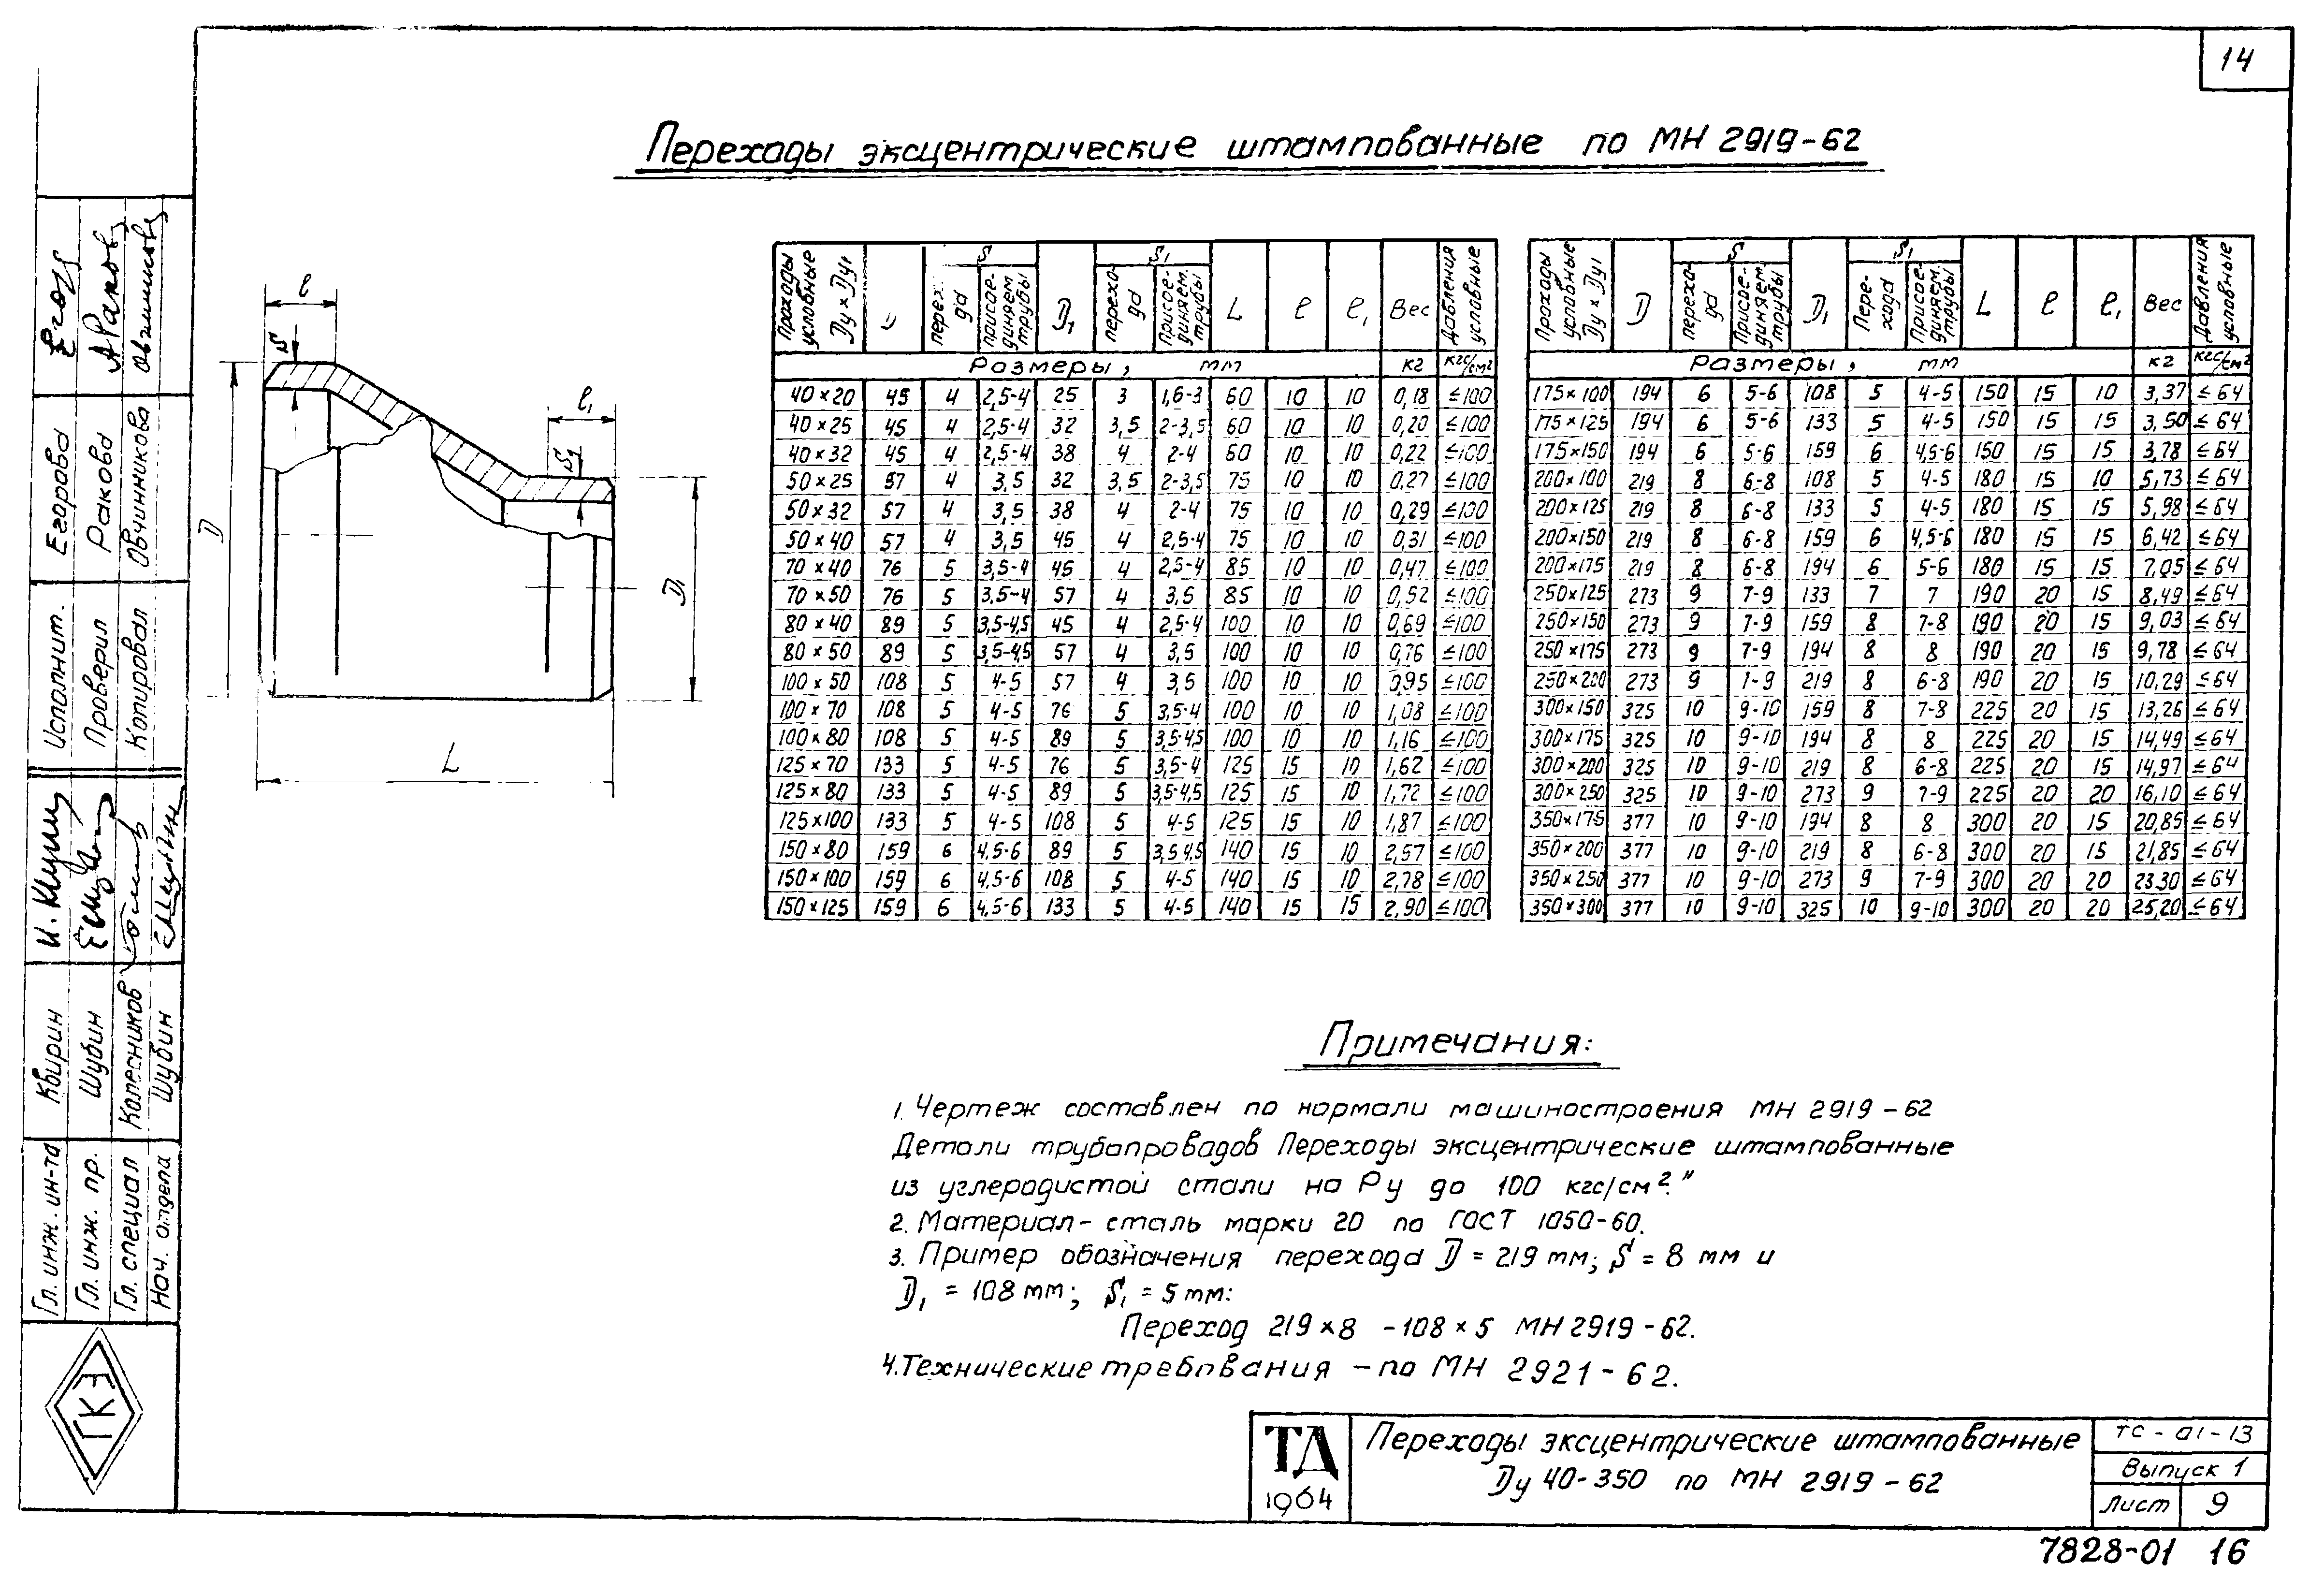 14
Переходы эксцентрические штампованные по МН 2919-62
l
S
l₁
S₁
D
D₁
L
Проходы условные Dy × Dy₁
D
S
перехода
присоединяем. трубы
D₁
S₁
перехода
присоединяем. трубы
L
l
l₁
Вес
Давления условные
Размеры, мм кг кгс/см²
40×20 45 4 2,5-4 25 3 1,6-3 60 10 10 0,18 ≤100
40×25 45 4 2,5-4 32 3,5 2-3,5 60 10 10 0,20 ≤100
40×32 45 4 2,5-4 38 4 2-4 60 10 10 0,22 ≤100
50×25 57 4 3,5 32 3,5 2-3,5 75 10 10 0,27 ≤100
50×32 57 4 3,5 38 4 2-4 75 10 10 0,29 ≤100
50×40 57 4 3,5 45 4 2,5-4 75 10 10 0,31 ≤100
70×40 76 5 3,5-4 45 4 2,5-4 85 10 10 0,47 ≤100
70×50 76 5 3,5-4 57 4 3,5 85 10 10 0,52 ≤100
80×40 89 5 3,5-4,5 45 4 2,5-4 100 10 10 0,69 ≤100
80×50 89 5 3,5-4,5 57 4 3,5 100 10 10 0,76 ≤100
100×50 108 5 4-5 57 4 3,5 100 10 10 0,95 ≤100
100×70 108 5 4-5 76 5 3,5-4 100 10 10 1,08 ≤100
100×80 108 5 4-5 89 5 3,5-4,5 100 10 10 1,16 ≤100
125×70 133 5 4-5 76 5 3,5-4 125 15 10 1,62 ≤100
125×80 133 5 4-5 89 5 3,5-4,5 125 15 10 1,72 ≤100
125×100 133 5 4-5 108 5 4-5 125 15 10 1,87 ≤100
150×80 159 6 4,5-6 89 5 3,5-4,5 140 15 10 2,57 ≤100
150×100 159 6 4,5-6 108 5 4-5 140 15 10 2,78 ≤100
150×125 159 6 4,5-6 133 5 4-5 140 15 15 2,90 ≤100
Проходы условные Dy × Dy₁
D
S
перехода
Присоединяем. трубы
D₁
S₁
Перехода
Присоединяем. трубы
L
l
l₁
Вес
Давления условные
Размеры, мм кг кгс/см²
175×100 194 6 5-6 108 5 4-5 150 15 10 3,37 ≤64
175×125 194 6 5-6 133 5 4-5 150 15 15 3,50 ≤64
175×150 194 6 5-6 159 6 4,5-6 150 15 15 3,78 ≤64
200×100 219 8 6-8 108 5 4-5 180 15 10 5,73 ≤64
200×125 219 8 6-8 133 5 4-5 180 15 15 5,98 ≤64
200×150 219 8 6-8 159 6 4,5-6 180 15 15 6,42 ≤64
200×175 219 8 6-8 194 6 5-6 180 15 15 7,05 ≤64
250×125 273 9 7-9 133 7 7 190 20 15 8,49 ≤64
250×150 273 9 7-9 159 8 7-8 190 20 15 9,03 ≤64
250×175 273 9 7-9 194 8 8 190 20 15 9,78 ≤64
250×200 273 9 7-9 219 8 6-8 190 20 15 10,29 ≤64
300×150 325 10 9-10 159 8 7-8 225 20 15 13,26 ≤64
300×175 325 10 9-10 194 8 8 225 20 15 14,49 ≤64
300×200 325 10 9-10 219 8 6-8 225 20 15 14,97 ≤64
300×250 325 10 9-10 273 9 7-9 225 20 20 16,10 ≤64
350×175 377 10 9-10 194 8 8 300 20 15 20,85 ≤64
350×200 377 10 9-10 219 8 6-8 300 20 15 21,85 ≤64
350×250 377 10 9-10 273 9 7-9 300 20 20 23,30 ≤64
350×300 377 10 9-10 325 10 9-10 300 20 20 25,20 ≤64
Примечания:
1. Чертеж составлен по нормали машиностроения МН 2919-62
Детали трубопроводов Переходы эксцентрические штампованные
из углеродистой стали на Ру до 100 кгс/см².″
2. Материал- сталь марки 20 по ГОСТ 1050-60.
3. Пример обозначения перехода D = 219 мм; S = 8 мм и
D₁ = 108 мм; S₁ = 5 мм:
Переход 219×8 -108×5 МН 2919-62.
4. Технические требования - по МН 2921-62.
ТД
1964
Переходы эксцентрические штампованные
Dy 40-350 по МН 2919-62
ТС-01-13
Выпуск 1
Лист 9
7828-01 16
Исполнит. Егорова
Проверил Ракова
Копировал Овчинникова
Гл. инж. ин-та Квирин
Гл. инж. пр. Шубин
Гл. специал Колесников
Нач. отдела Шубин
ГКЭ